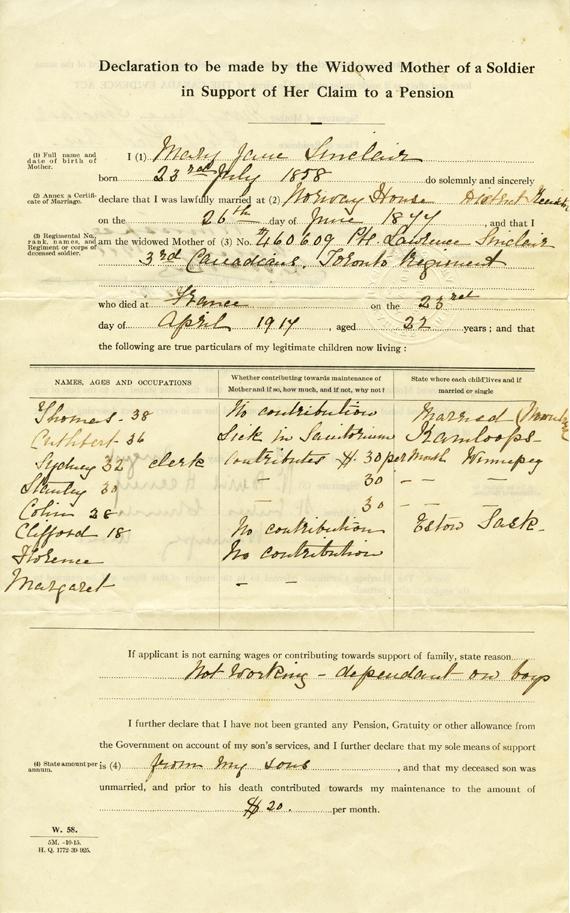 Declaration to be made by the Widowed Mother of a Soldier
in Support of Her Claim to a Pension
(1) Full name and date of birth of Mother.
I (1) Mary Jane Sinclair
born 23rd July 1858 do solemnly and sincerely
(2) Annex a Certificate of Marriage.
declare that I was lawfully married at (2) Norway House District
on the 26th day of June 1877, and that I
(3) Regimental No., rank, names, and Regiment or corps of deceased soldier.
am the widowed Mother of (3) No. 460609 Pte Lawrence Sinclair
3rd Canadians, Toronto Regiment
who died at France on the 23rd
day of April 1917, aged 22 years; and that
the following are true particulars of my legitimate children now living:
NAMES, AGES AND OCCUPATIONS
Whether contributing towards maintenance of Mother and if so, how much, and if not, why not?
State where each child lives and if married or single
Thomas - 38 No contribution Married
Cuthbert 36 Sick in Sanitorium Kamloops
Sydney 32 clerk contributes $30 per month Winnipeg
Stanley 30 - 30 - - -
Colin 28 - 30
Clifford 18 No contribution Eston Sask.
Florence No contribution
Margaret - -
If applicant is not earning wages or contributing towards support of family, state reason
Not Working - dependant on boys
I further declare that I have not been granted any Pension, Gratuity or other allowance from
the Government on account of my son's services, and I further declare that my sole means of support
(4) State amount per annum.
is (4) from my sons, and that my deceased son was
unmarried, and prior to his death contributed towards my maintenance to the amount of
$20. per month.
W. 58.
5M. -10-15.
H. Q. 1772-39-925.